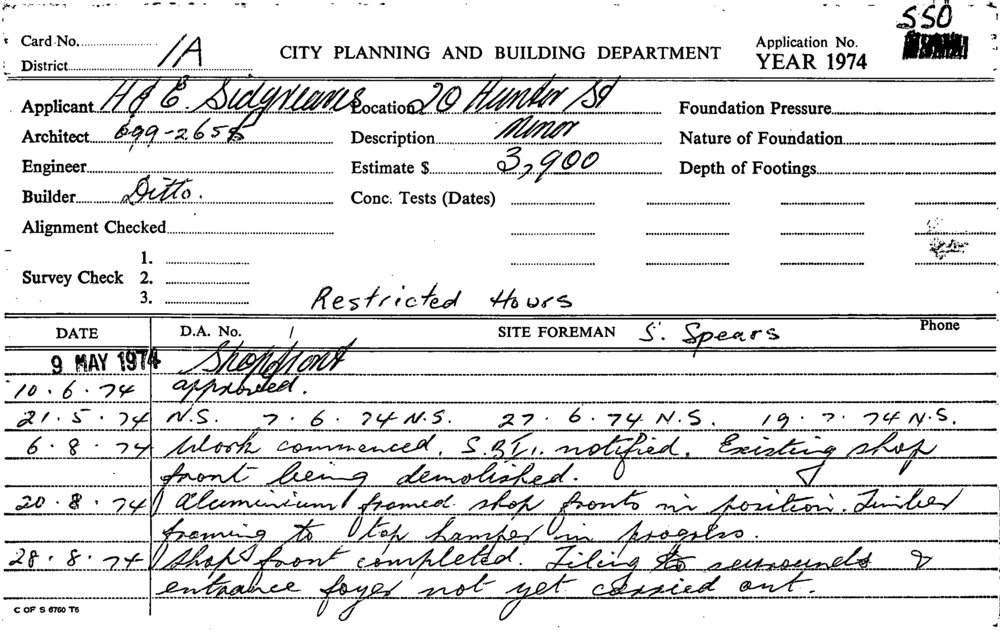 SSO
Card No. 1A CITY PLANNING AND BUILDING DEPARTMENT Application No.
District YEAR 1974
Applicant H & E. Sidgreaves Location 20 Hunter St Foundation Pressure
Architect 699-2658 Description Minor Nature of Foundation
Engineer Estimate $ 3,900 Depth of Footings
Builder Ditto. Conc. Tests (Dates)
Alignment Checked
1.
Survey Check 2.
3. Restricted Hours
DATE D.A. No. / SITE FOREMAN S. Spears Phone
9 MAY 1974 Shopfront
10.6.74 approved.
21.5.74 N.S. 7.6.74 N.S. 27.6.74 N.S. 19.7.74 N.S.
6.8.74 Work commenced. S.B.I. notified. Existing shop
front being demolished.
20.8.74 Aluminium framed shop fronts in position. Timber
framing to top hamper in progress.
28.8.74 Shop front completed. Tiling to surrounds &
entrance foyer not yet carried out.
C OF S 6760 T6